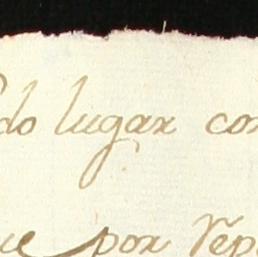 do lugar con
ue por rep